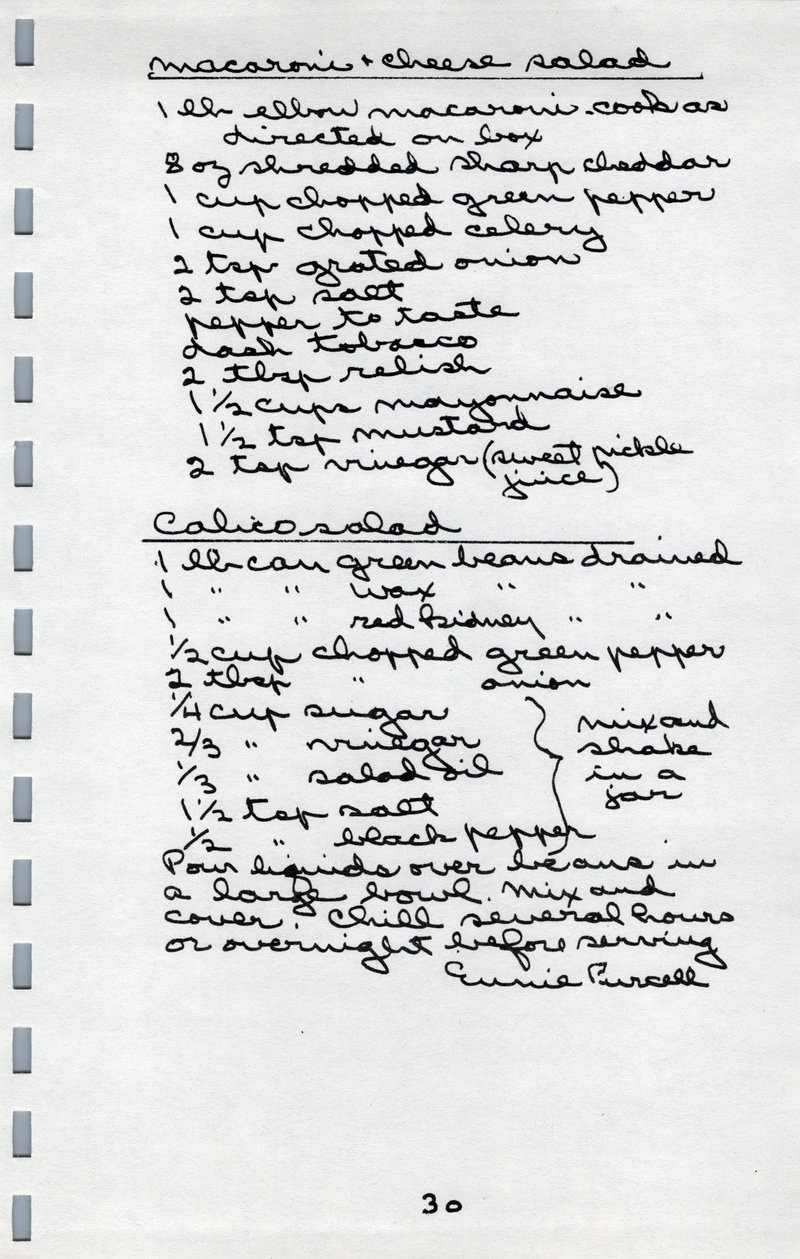 macaroni + cheese salad
1 lb elbow macaroni - cook as
directed on box
8 oz shredded sharp cheddar
1 cup chopped green pepper
1 cup chopped celery
2 tsp grated onion
2 tsp salt
pepper to taste
dash tobasco
2 tbsp relish
1 1/2 cups mayonnaise
1 1/2 tsp mustard
2 tsp vinegar (sweet pickle
juice)
Calico salad
1 lb can green beans drained
1 " " wax " "
1 " " red kidney " "
1/2 cup chopped green pepper
2 tbsp " onion
1/4 cup sugar
2/3 " vinegar
1/3 " salad oil
1 1/2 tsp salt
1/2 " black pepper
mix and
shake
in a
jar
Pour liquids over beans in
a large bowl. Mix and
cover. Chill several hours
or overnight before serving
Eunie Purcell
30